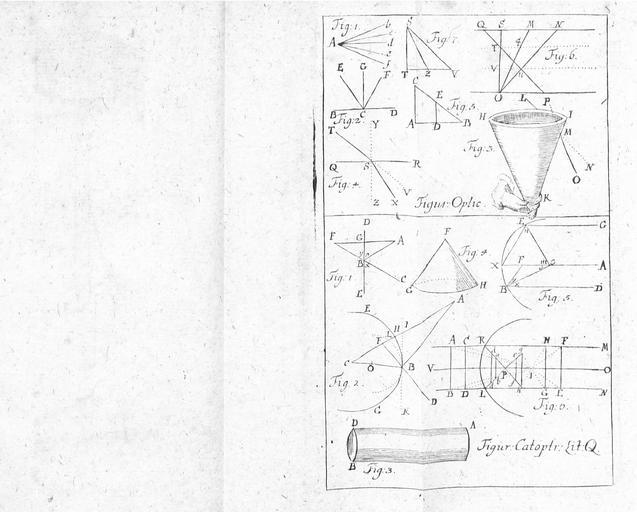 Fig: 1.
b
A
c
d
e
f
S
Fig: 7.
T Z V
Q S M N
T
V
Fig: 6.
O L P
E G F
B C D
Fig: 2.
C
E
Fig: 5.
A D B
H I
M
Fig: 3.
N
O
K
T Y
Q S R
Fig: 4.
V
Z X
Figur: Optic.
D
F G A
B
Fig: 1
C
E
F
Fig: 4
G H
E G
X F A
B D
Fig: 5.
E
H I A
F
C O B
Fig: 2.
D
G K
A C R H F M
V P I O
B D L G E N
Fig: 6.
D A
B
Fig: 3.
Figur: Catoptr: Lit: Q.